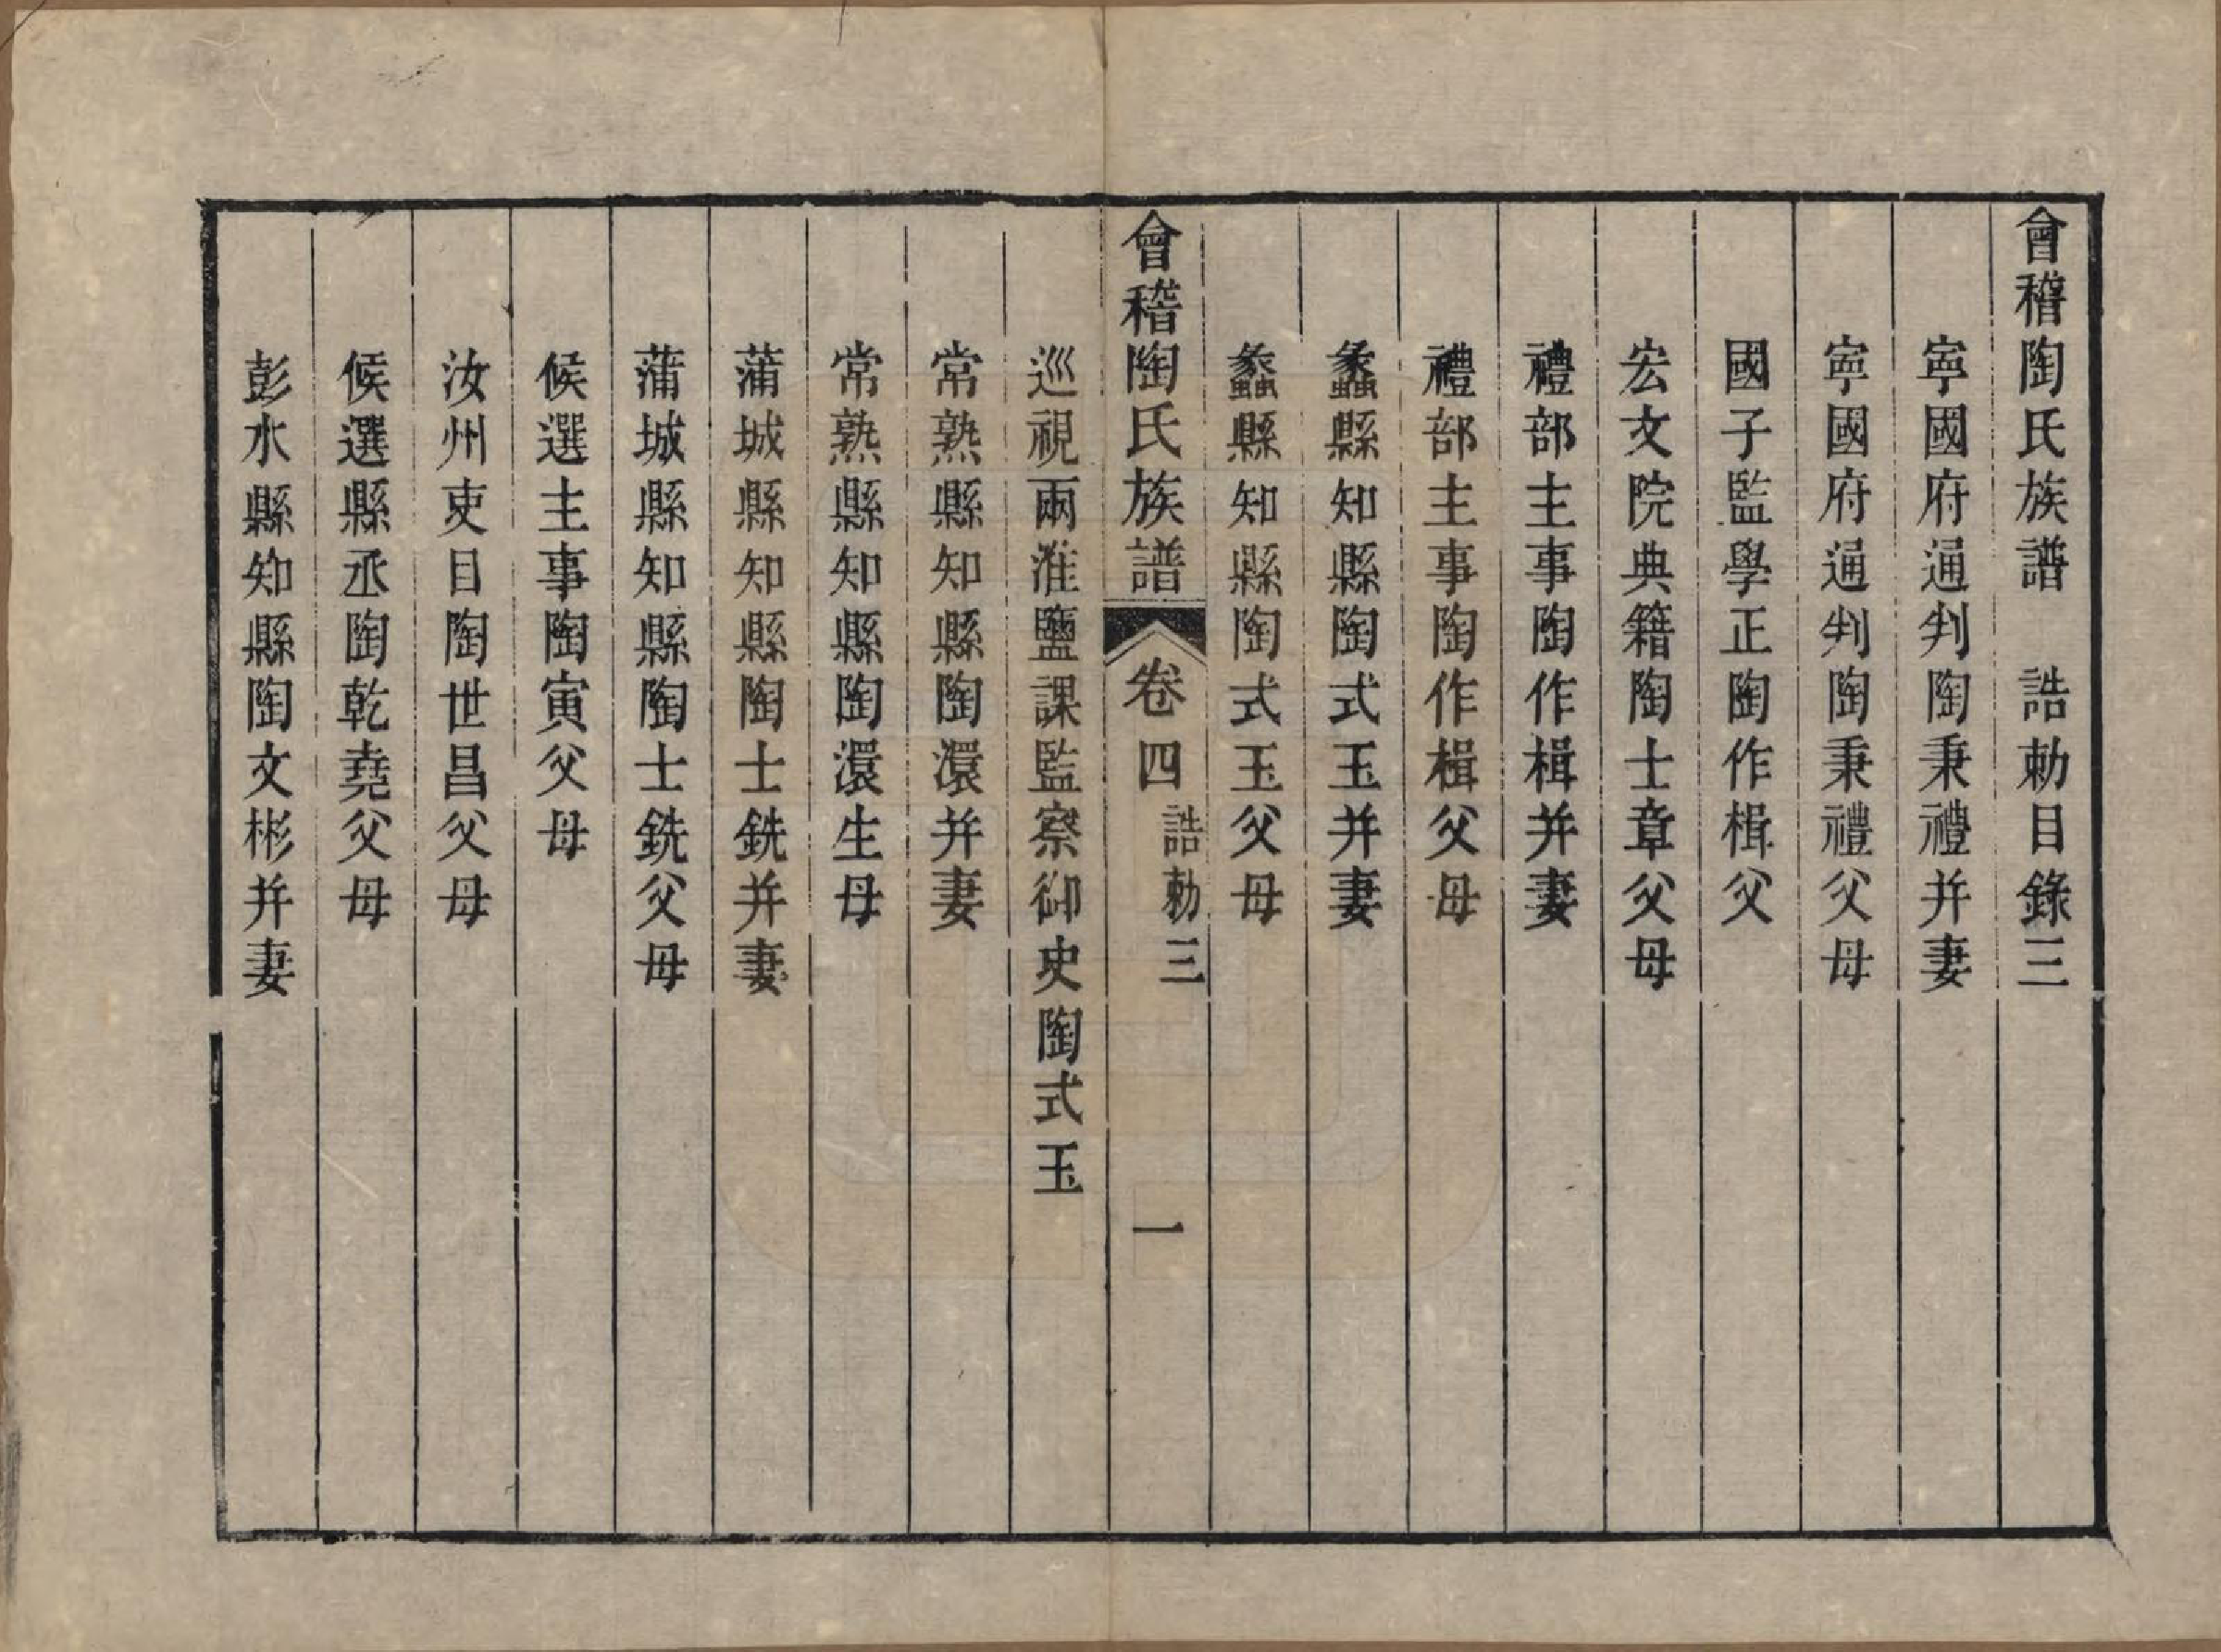 會稽陶氏族譜　誥勅目錄三
寧國府通判陶秉禮并妻
寧國府通判陶秉禮父母
國子監學正陶作楫父
宏文院典籍陶士章父母
禮部主事陶作楫并妻
禮部主事陶作楫父母
蠡縣知縣陶式玉并妻
蠡縣知縣陶式玉父母
會稽陶氏族譜　卷四　誥勅三　一
巡視兩淮鹽課監察御史陶式玉
常熟縣知縣陶澴并妻
常熟縣知縣陶澴生母
蒲城縣知縣陶士銑并妻
蒲城縣知縣陶士銑父母
候選主事陶寅父母
汝州吏目陶世昌父母
候選縣丞陶乾堯父母
彭水縣知縣陶文彬并妻